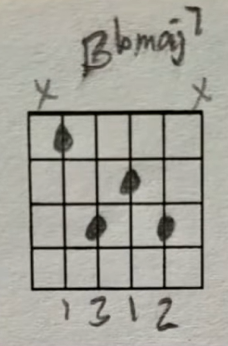 Bbmaj7
x x
1 3 1 2